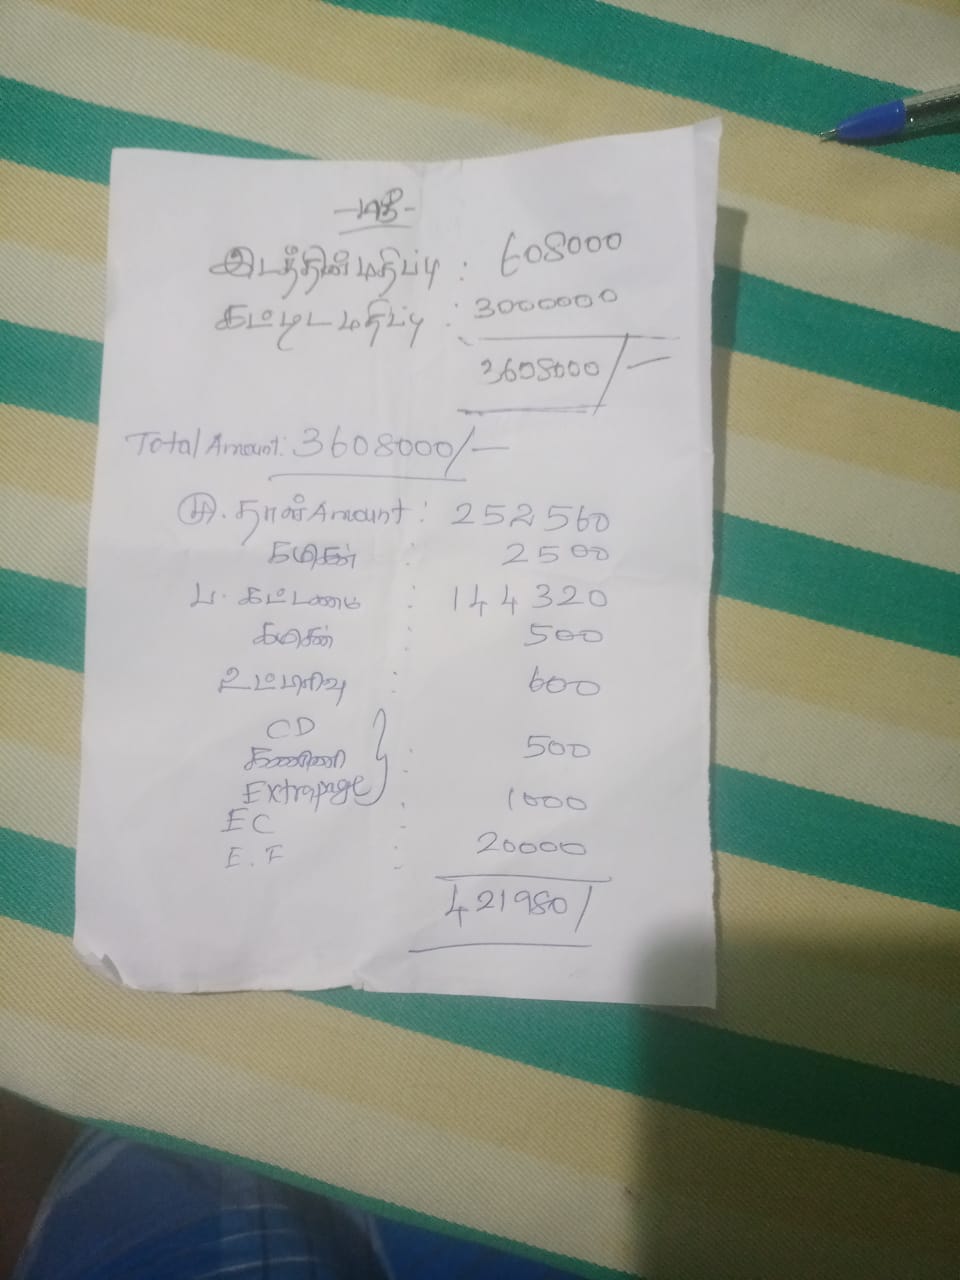 இடத்தின் மதிப்பு : 608000
கட்டிட மதிப்பு : 3000000
3608000/-
Total Amount: 3608000/-
மு. தாள் Amount : 252560
கமிசன் : 2500
ப. கட்டணம் : 144320
கமிசன் : 500
உட்பிரிவு : 600
CD
கணினி : 500
Extrapage
EC : 1000
E.F : 20000
421980/